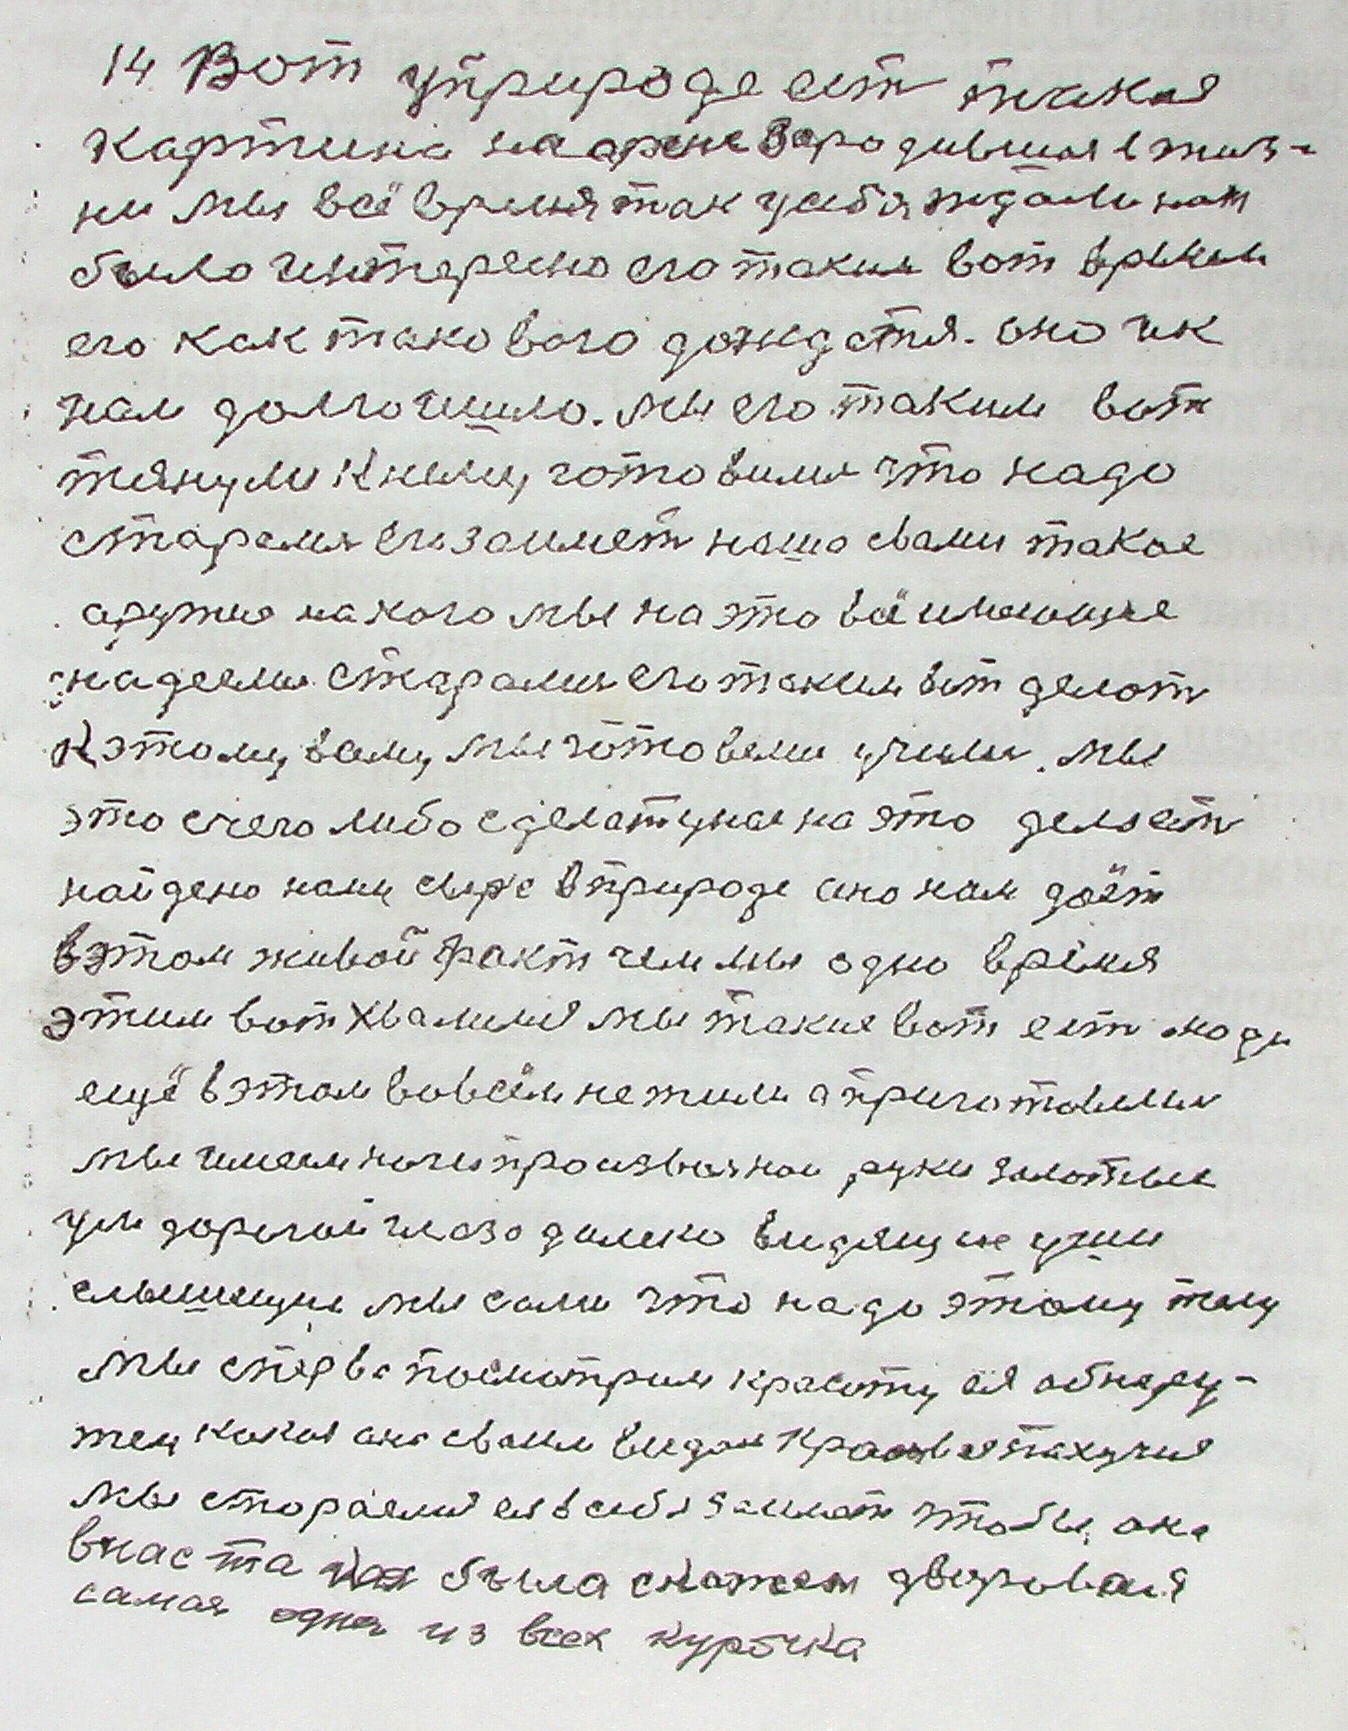 14 Вот уприроде ест такая
картина на арене зародившая в жиз-
ни мы всё время так усебя ждали нам
было интересно его таким вот время
его как таковога дождатся. оно ик
нам долго шило. мы его таким вот
тянули книму, готовилис что надо
старалис его заимет нашо свами такое
аружие накого мы на это всё имеющие
надеялис старалис его таким вот делот
кэтому ваму мы готовели училис. мы
это счего либо сделат унас на это дело ест
найдено наму сыръе вприроде оно нам даёт
вэтом живой факт чем мы одно время
этим вот хвалилис мы такие вот ест люди
ещё вэтом вовсём нежили априготовилис
мы имеем наче произваяном руки золотые
ум дорогой глаза далико видящие уши
слышищии мы сами что надо этому телу
мы сперва посмотрим красоту ея обнару-
жем какая она сваим видом красивая пахучия
мы стораемся ея всебя заимат чтобы она
внас та кая была скажем двуровая
самая одна из всех курочка